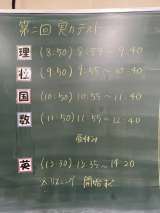 第二回 実力テスト
理 (8:50) 8:55~9:40
社 (9:50) 9:55~10:40
国 (10:50) 10:55~11:40
数 (11:50) 11:55~12:40
昼休み
英 (13:30) 13:35~14:20
※リスニング 開始